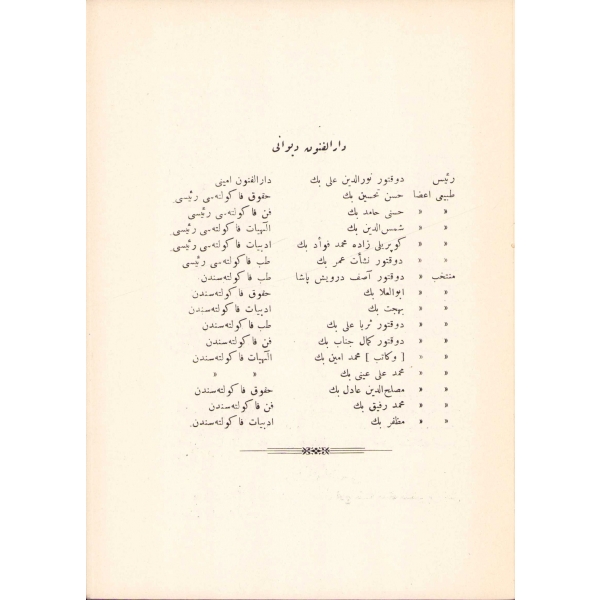 دار الفنون ديوانى
رئيس دوقتور نور الدين على بك دار الفنون امينى
طبيعى اعضا حسن تحسين بك حقوق فاكولته‌سى رئيسى
» » حسنى حامد بك فن فاكولته‌سى رئيسى
» » شمس الدين بك الٓهيات فاكولته‌سى رئيسى
» » كوپريلى زاده محمد فوآد بك ادبيات فاكولته‌سى رئيسى
» » دوقتور نشأت عمر بك طب فاكولته‌سى رئيسى
منتخب » دوقتور آصف درويش پاشا طب فاكولته‌سندن
» » ابوالعلا بك حقوق فاكولته‌سندن
» » بهجت بك ادبيات فاكولته‌سندن
» » دوقتور ثريا على بك طب فاكولته‌سندن
» » دوقتور كمال جناب بك فن فاكولته‌سندن
» » [ وكاتب ] محمد امين بك الٓهيات فاكولته‌سندن
» » محمد على عينى بك » »
» » مصلح الدين عادل بك حقوق فاكولته‌سندن
» » محمد رفيق بك فن فاكولته‌سندن
» » مظفر بك ادبيات فاكولته‌سندن